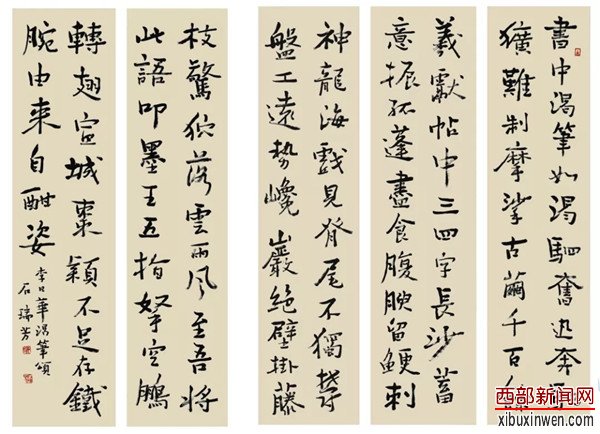 書中渴筆如渴駟奮迅奔
獷難制摩挲古繭千百
羲獻帖中三四字長沙蓄
意振孤蓬盡食腹腴留鯁刺
神龍海戲見脊尾不獨鬱
盤工遠勢巉巖絕壁掛藤
枝驚狖落雲雨風至吾將
此語叩墨王五指拏空鵬
轉翅宣城棗穎不足存鐵
腕由来自酣姿
李日華渴筆頌
石瑞芳
西部新闻网
xibuxinwen.com